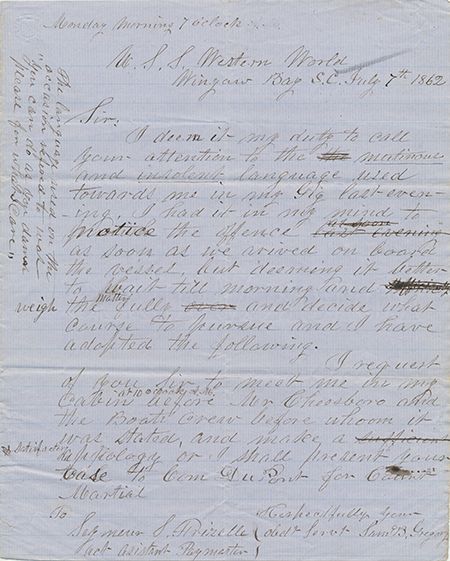 Monday Morning 7 o'clock
U. S. S. Western World
Wingaw Bay S.C. July 7th 1862
Sir.
I deem it my duty to call
your attention to the the mutinous
and insolent language used
towards me in my Gig last even-
ing, I had it in my mind to
notice the offence last evening
as soon as we arived on board
the vessel, but deeming it better
to wait till morning and
weigh the matter fully over and decide what
course to poursue and I have
adopted the following.
I request
of you Sir to meet me in my
Cabin at 10 o'clock A.M. before Mr Cheesboro and
the Boats Crew before whom it
was stated, and make a sufficient
satisfactory apology or I shall present your
Case to Com Du Pont for Court
Martial
Respectfully Your
obdt Servt Saml B. Gregory
To
Seymour S. Frizelle
act asistant Paymaster
The language used on the
occasion refered to was
"You can do as you damn
please for what I Care"